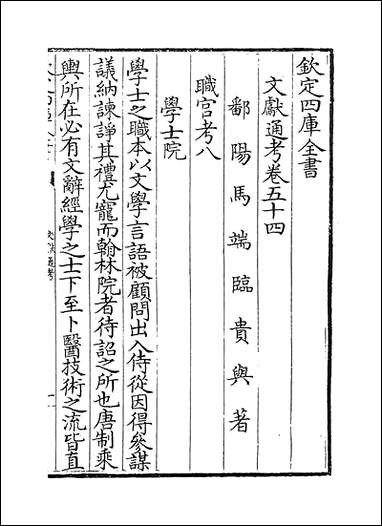 欽定四庫全書
文獻通考卷五十四
鄱陽馬端臨貴與著
職官考八
學士院
學士之職本以文學言語被顧問出入侍從因得參謀
議納諫諍其禮尤寵而翰林院者待詔之所也唐制乘
輿所在必有文辭經學之士下至卜醫技術之流皆直
文獻通考